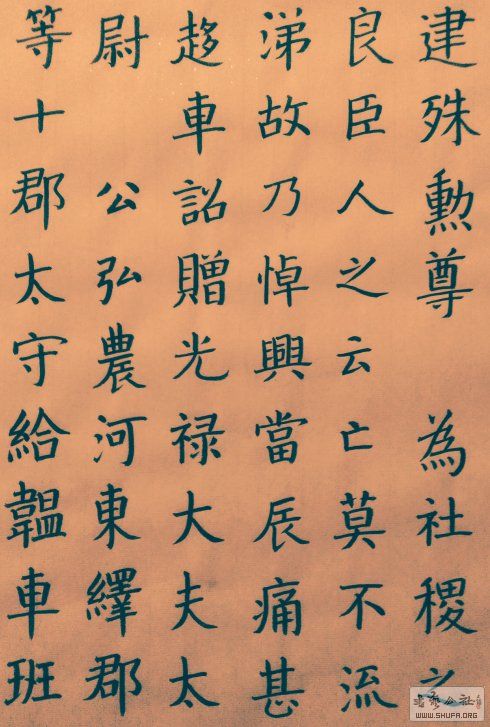 建殊勲尊 為社稷之
良臣人之云亡莫不流
涕故乃悼興當辰痛甚
趍車詔贈光禄大夫太
尉 公弘農河東繹郡
等十郡太守給韞車班
WWW.SHUFA.ORG